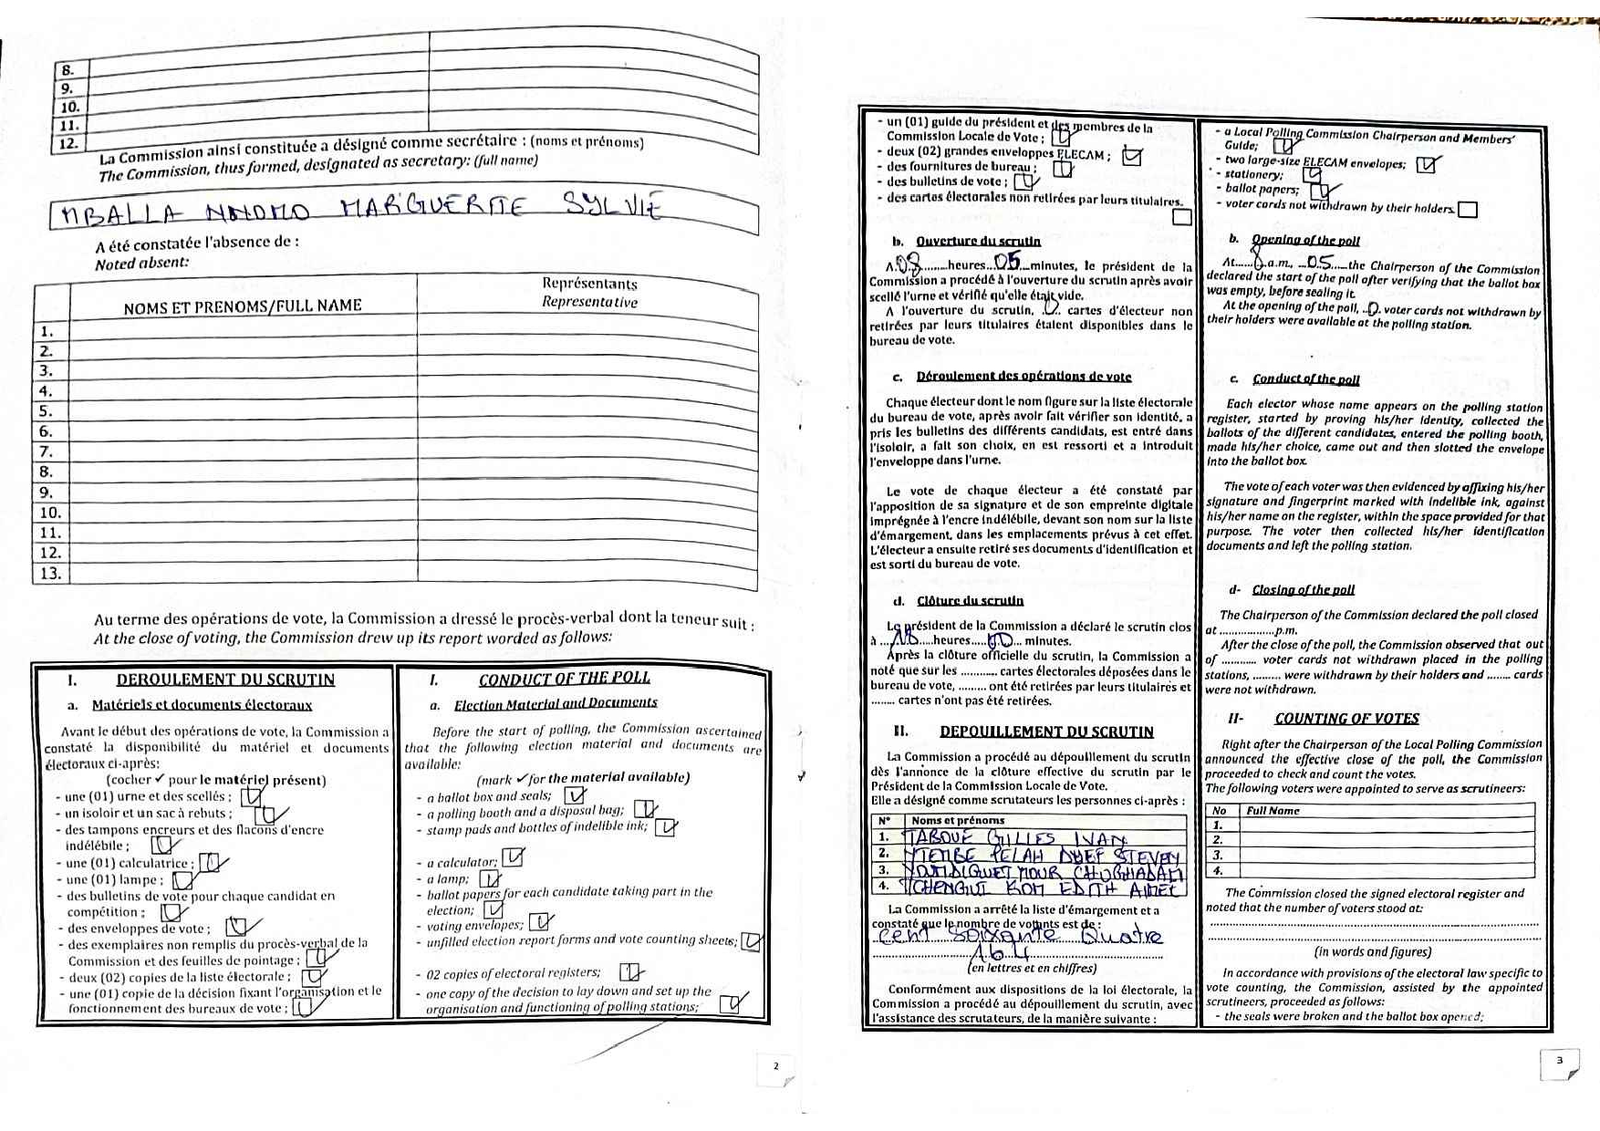 8.
9.
10.
11.
12.
La Commission ainsi constituée a désigné comme secrétaire : (noms et prénoms)
The Commission, thus formed, designated as secretary: (full name)
MBALLA NNOMO MARGUERITE SYLVIE
A été constatée l'absence de :
Noted absent:
NOMS ET PRENOMS/FULL NAME
Représentants
Representative
1.
2.
3.
4.
5.
6.
7.
8.
9.
10.
11.
12.
13.
Au terme des opérations de vote, la Commission a dressé le procès-verbal dont la teneur suit :
At the close of voting, the Commission drew up its report worded as follows:
I. DEROULEMENT DU SCRUTIN
a. Matériels et documents électoraux
Avant le début des opérations de vote, la Commission a
constaté la disponibilité du matériel et documents
électoraux ci-après:
(cocher ✓ pour le matériel présent)
- une (01) urne et des scellés ;
- un isoloir et un sac à rebuts ;
- des tampons encreurs et des flacons d'encre
indélébile ;
- une (01) calculatrice ;
- une (01) lampe ;
- des bulletins de vote pour chaque candidat en
compétition ;
- des enveloppes de vote ;
- des exemplaires non remplis du procès-verbal de la
Commission et des feuilles de pointage ;
- deux (02) copies de la liste électorale ;
- une (01) copie de la décision fixant l'organisation et le
fonctionnement des bureaux de vote ;
I. CONDUCT OF THE POLL
a. Election Material and Documents
Before the start of polling, the Commission ascertained
that the following election material and documents are
available:
(mark ✓ for the material available)
- a ballot box and seals;
- a polling booth and a disposal bag;
- stamp pads and bottles of indelible ink;
- a calculator;
- a lamp;
- ballot papers for each candidate taking part in the
election;
- voting envelopes;
- unfilled election report forms and vote counting sheets;
- 02 copies of electoral registers;
- one copy of the decision to lay down and set up the
organisation and functioning of polling stations;
2
- un (01) guide du président et des membres de la
Commission Locale de Vote ;
- deux (02) grandes enveloppes ELECAM ;
- des fournitures de bureau ;
- des bulletins de vote ;
- des cartes électorales non retirées par leurs titulaires.
b. Ouverture du scrutin
A 08 heures 05 minutes, le président de la
Commission a procédé à l'ouverture du scrutin après avoir
scellé l'urne et vérifié qu'elle était vide.
A l'ouverture du scrutin, 0 cartes d'électeur non
retirées par leurs titulaires étaient disponibles dans le
bureau de vote.
c. Déroulement des opérations de vote
Chaque électeur dont le nom figure sur la liste électorale
du bureau de vote, après avoir fait vérifier son identité, a
pris les bulletins des différents candidats, est entré dans
l'isoloir, a fait son choix, en est ressorti et a introduit
l'enveloppe dans l'urne.
Le vote de chaque électeur a été constaté par
l'apposition de sa signature et de son empreinte digitale
imprégnée à l'encre indélébile, devant son nom sur la liste
d'émargement, dans les emplacements prévus à cet effet.
L'électeur a ensuite retiré ses documents d'identification et
est sorti du bureau de vote.
d. Clôture du scrutin
Le président de la Commission a déclaré le scrutin clos
à 18 heures 00 minutes.
Après la clôture officielle du scrutin, la Commission a
noté que sur les ............ cartes électorales déposées dans le
bureau de vote, ......... ont été retirées par leurs titulaires et
........ cartes n'ont pas été retirées.
II. DEPOUILLEMENT DU SCRUTIN
La Commission a procédé au dépouillement du scrutin
dès l'annonce de la clôture effective du scrutin par le
Président de la Commission Locale de Vote.
Elle a désigné comme scrutateurs les personnes ci-après :
N° Noms et prénoms
1. TABOUE GILLES IVAN
2. PELAH STEVEN
3.
4. TCHENGUI KOM EDITH
La Commission a arrêté la liste d'émargement et a
constaté que le nombre de votants est de :
cent soixante quatre
164
(en lettres et en chiffres)
Conformément aux dispositions de la loi électorale, la
Commission a procédé au dépouillement du scrutin, avec
l'assistance des scrutateurs, de la manière suivante :
- a Local Polling Commission Chairperson and Members'
Guide;
- two large-size ELECAM envelopes;
- stationery;
- ballot papers;
- voter cards not withdrawn by their holders.
b. Opening of the poll
At 8 a.m., 05 the Chairperson of the Commission
declared the start of the poll after verifying that the ballot box
was empty, before sealing it.
At the opening of the poll, 0 voter cards not withdrawn by
their holders were available at the polling station.
c. Conduct of the poll
Each elector whose name appears on the polling station
register, started by proving his/her identity, collected the
ballots of the different candidates, entered the polling booth,
made his/her choice, came out and then slotted the envelope
into the ballot box.
The vote of each voter was then evidenced by affixing his/her
signature and fingerprint marked with indelible ink, against
his/her name on the register, within the space provided for that
purpose. The voter then collected his/her identification
documents and left the polling station.
d- Closing of the poll
The Chairperson of the Commission declared the poll closed
at ..................p.m.
After the close of the poll, the Commission observed that out
of ............ voter cards not withdrawn placed in the polling
stations, ......... were withdrawn by their holders and ........ cards
were not withdrawn.
II- COUNTING OF VOTES
Right after the Chairperson of the Local Polling Commission
announced the effective close of the poll, the Commission
proceeded to check and count the votes.
The following voters were appointed to serve as scrutineers:
No Full Name
1.
2.
3.
4.
The Commission closed the signed electoral register and
noted that the number of voters stood at:
(in words and figures)
In accordance with provisions of the electoral law specific to
vote counting, the Commission, assisted by the appointed
scrutineers, proceeded as follows:
- the seals were broken and the ballot box opened;
3